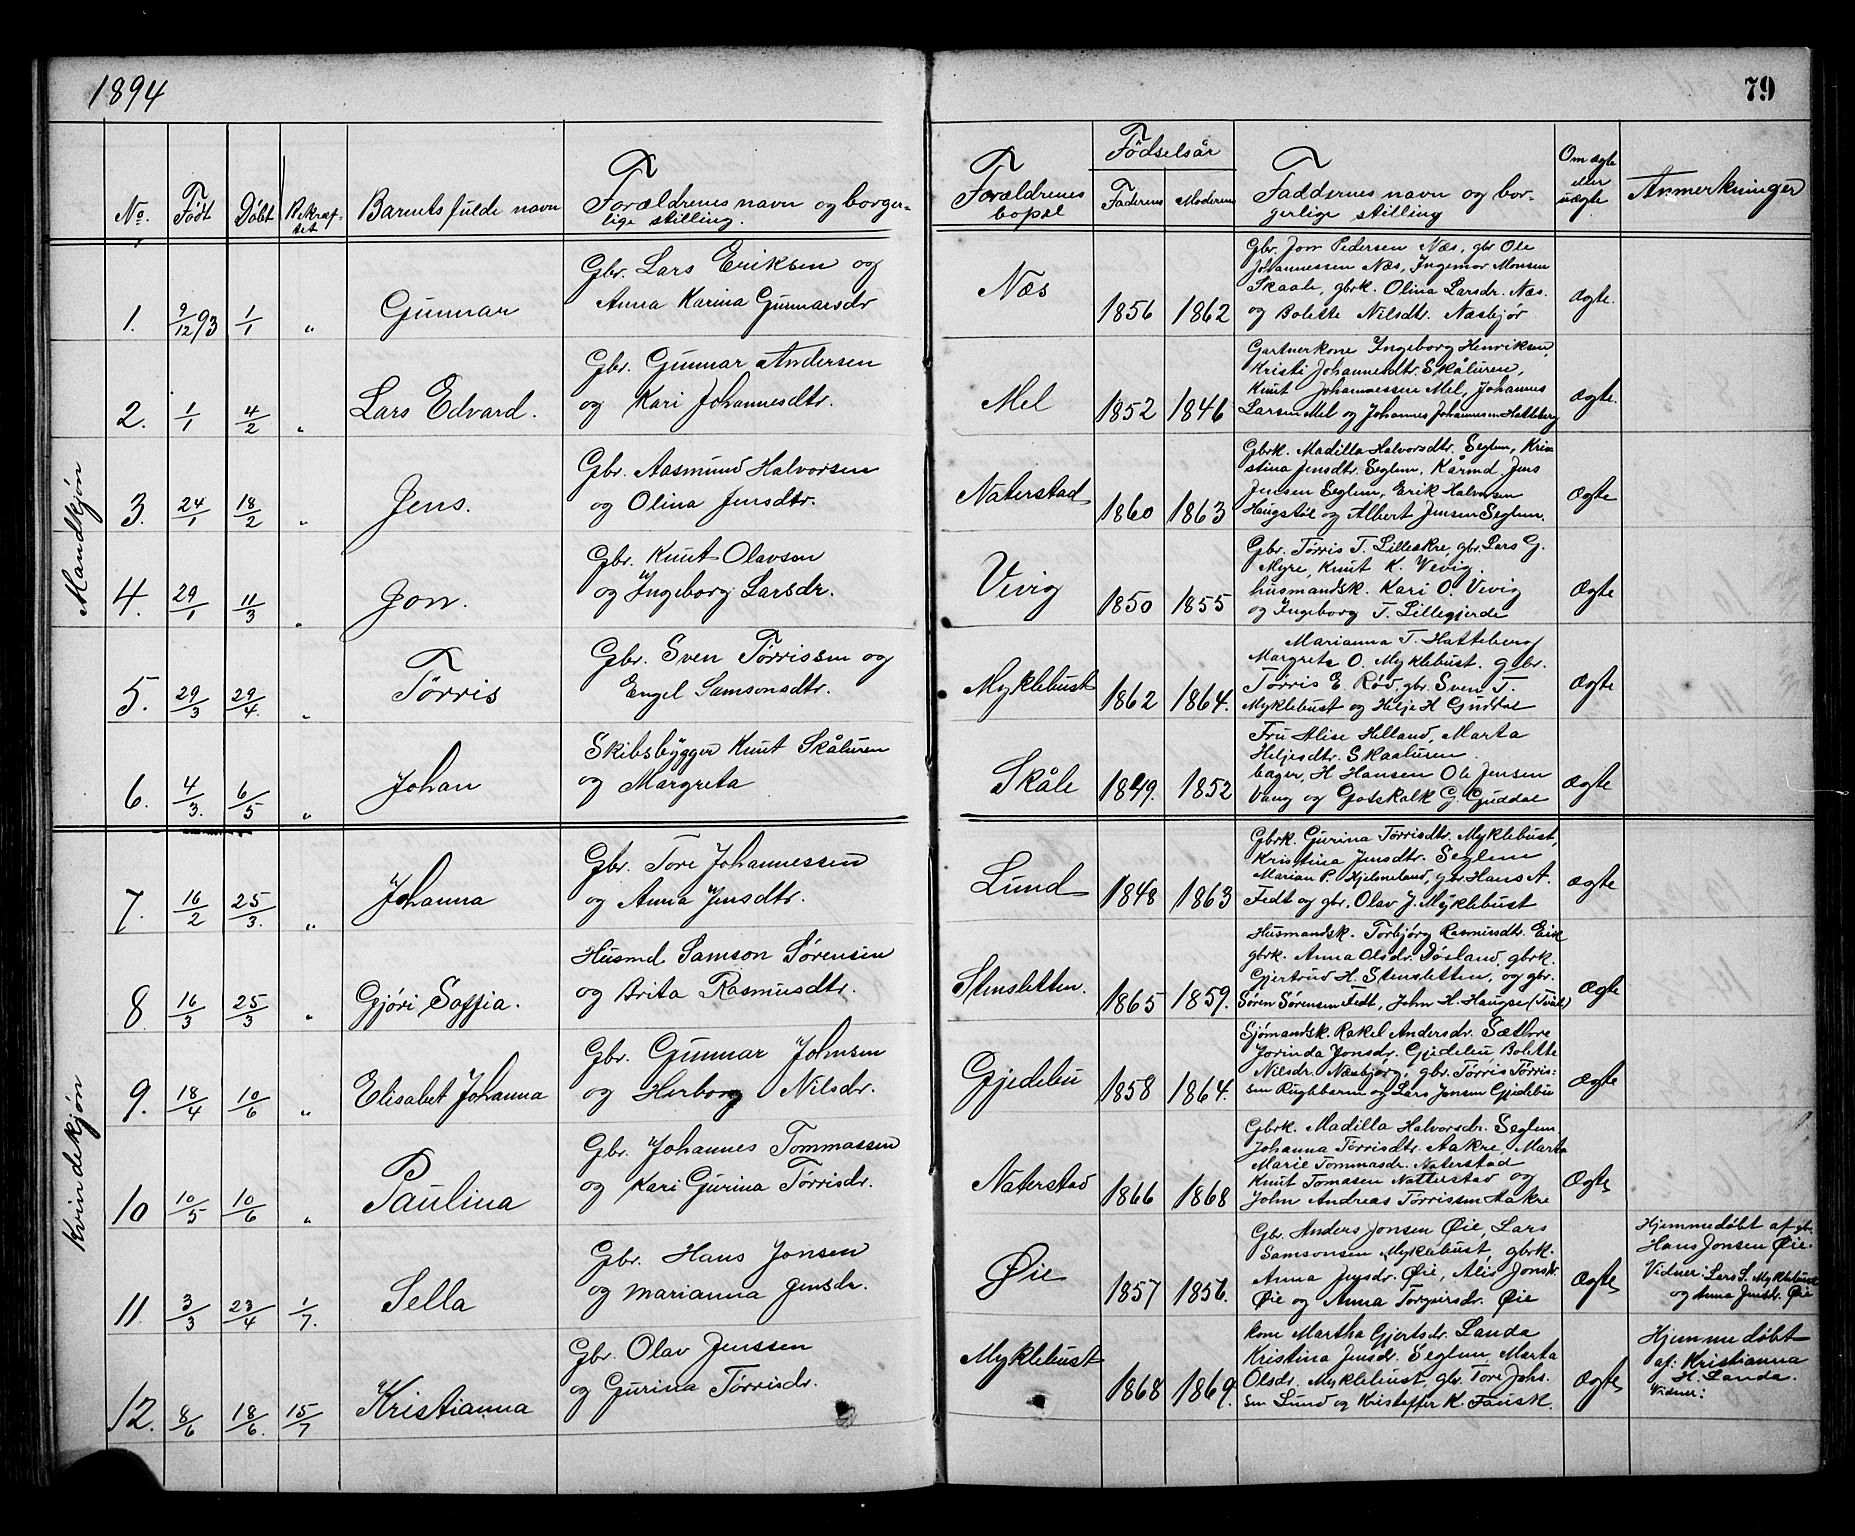 1894
79
No. Født Døbt Bekræf-tet Barnets fulde navn Forældrenes navn og borger-lige stilling. Forældrenes bopæl Fødselsår Faderens Moderens Faddernes navn og bor-gerlige stilling Om ægte eller uægte Anmerkninger
Mandkjøn
1. 9/12 93 1/1 " Gunnar
Gbr. Lars Eriksen og
Anna Karina Gunnarsdr
Næs 1856 1862
Gbr. Jon Pedersen Næs, gbr Ole
Johannessen Næs, Ingemor Monsen
Skaale, gbrk. Olina Larsdr. Næs.
og Bolette Nilsdtr. Næsbjør
Ægte.
2. 1/1 4/2 " Lars Edvard.
Gbr. Gunnar Andersen
og Kari Johannesdtr.
Mel 1852 1846
Gartnerkone Ingeborg Henriksen,
Kristi Johannesdtr. Skåluren,
Knut Johannessen Mel, Johannes
Larsen Mel og Johannes Johannesen Hatteberg
Ægte.
3. 24/1 18/2 " Jens.
Gbr. Aasmund Halvorsen
og Olina Jensdtr.
Naterstad 1860 1863
Gbrk. Madilla Halvorsdtr. Seglem, Kri-
stina Jensdtr. Seglem, Kårmd. Jens
Jensen Seglem, Erik Halvorsen
Haugstøl og Albert Jensen Seglem.
Ægte
4. 29/1 11/3 " Jon.
Gbr. Knut Olavson
og Ingeborg Larsdr.
Vivig 1850 1855
Gbr. Tørris T. Lilleakre, gbr. Lars G.
Myre, Knut K. Wevig.
husmandsk. Kari O. Vevig
og Ingeborg T. Lillegjerde
Ægte
5. 29/3 29/4. " Tørris
Gbr. Sven Tørrissen og
Engel Samsonsdtr.
Myklebust 1862 1864.
Marianna T. Hatteberg
Margreta O. Myklebust. gbr.
Tørris E. Rød, gbr. Sven T.
Myklebust og Helje H Guddal
Ægte
6. 4/3. 6/5 " Johan
Skibsbygger Knut Skåluren
og Margreta
Skåle 1849. 1852
Fru Alise Helland, Marta
Heljesdtr. Skaaluren.
bager, H Hansen Ole Jensen
Vang og Gotskalk G. Guddal
Ægte
Kvindekjøn
7. 16/2 25/3. " Johanna
Gbr. Tore Johannessen
og Anna Jensdtr.
Lund 1848 1863
Gbrk. Gurina Tørrisdtr. Myklebust,
Kristina Jensdtr. Seglem
Marian P. Hjelmeland, gbr. Hans A.
Fedt og gbr. Olav J. Myklebust
Ægte
8 16/3 25/3 " Gjøri Soffia.
Husmd Samson Sørensen
og Brita Rasmusdtr.
Stensletten. 1865 1859.
Husmandsk. Torbjørg Rasmusdtr.
gbrk. Anna Olsdr. Døsland, gbrk.
Gjertrud H. Stensletten, og gbr.
Søren Sørensen Fedt, John H. Haugse
Ægte
9. 18/4 10/6 " Elisabet Johanna
Gbr. Gunnar Johnsen
og Herborg Nilsdr.
Gjedebu 1858 1864.
Sjømandsk. Rakel Andersdr. Sætbre
Jorinda Jonsdr. Gjedebu, Bolette
Nilsdr. Næsbjørg, gbr. Tørris Tørris-
sen og Lars Jonsen Gjedebu
Ægte
10 10/5 10/6 " Paulina
Gbr. Johannes Tommassen
og Kari Gurina Tørrisdr.
Naterstad 1866 1868
Gbrk. Madilla Halvorsdr. Seglem,
Johanna Tørrisdtr. Aakre, Marta
Marie Tommasdr. Naterstad
Knut Tomasen Natterstad og
John Andreas Tørrissen Aakre
Ægte
11. 3/3 23/4 1/7. Sella
Gbr. Hans Jonsen
og Marianna Jensdr.
Øie 1857 1856.
Gbr. Anders Jonsen Øie, Lars
Samsonsen Myklebust, gbrk.
Anna Jensdr. Øie, Alis Jonsdr.
Øie og Anna Torgersdr. Øie
Ægte
Hjemmedøbt af gbr.
Hans Jonsen Øie.
Vidner: Lars S. Myklebust
og Anna Jensdr. Øie
12. 8/6 18/6. 15/7 Kristianna
Gbr. Olav Jenssen
og Gurina Tørrisdr.
Myklebust 1868 1869.
Kone Martha Gjertsdr. Landa
Kristina Jensdr. Seglem, Marta
Olsdr. Myklebust, gbr. Tore Johs.
sen Lund og Kristoffer K. Fausk.
Ægte
Hjemmedøbt
af: Kristianna
H. Landa.
Vidner: